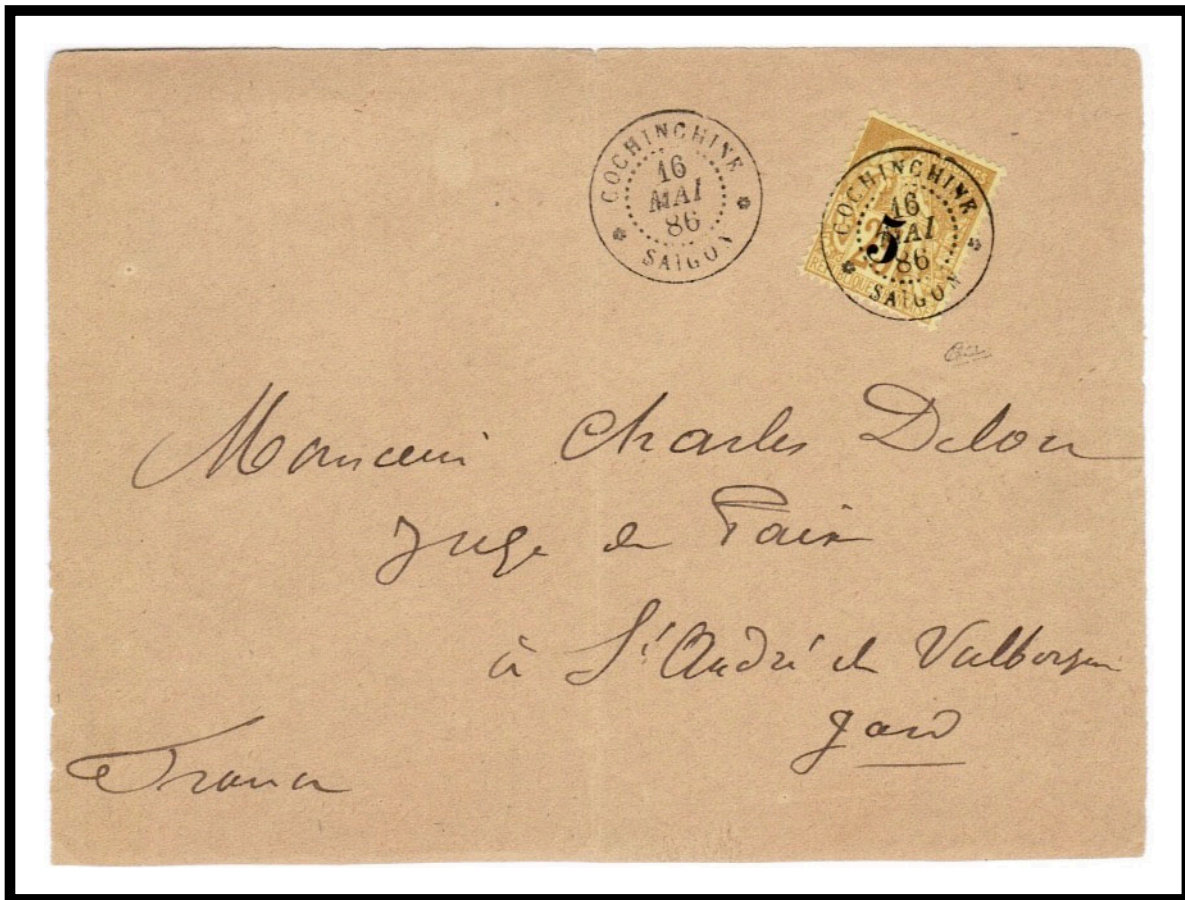 COCHINCHINE
16
MAI
86
SAIGON
COCHINCHINE
16
MAI
86
SAIGON
5
25
Monsieur Charles Delon
Juge de Paix
à St André de Valborgne
Gard
France